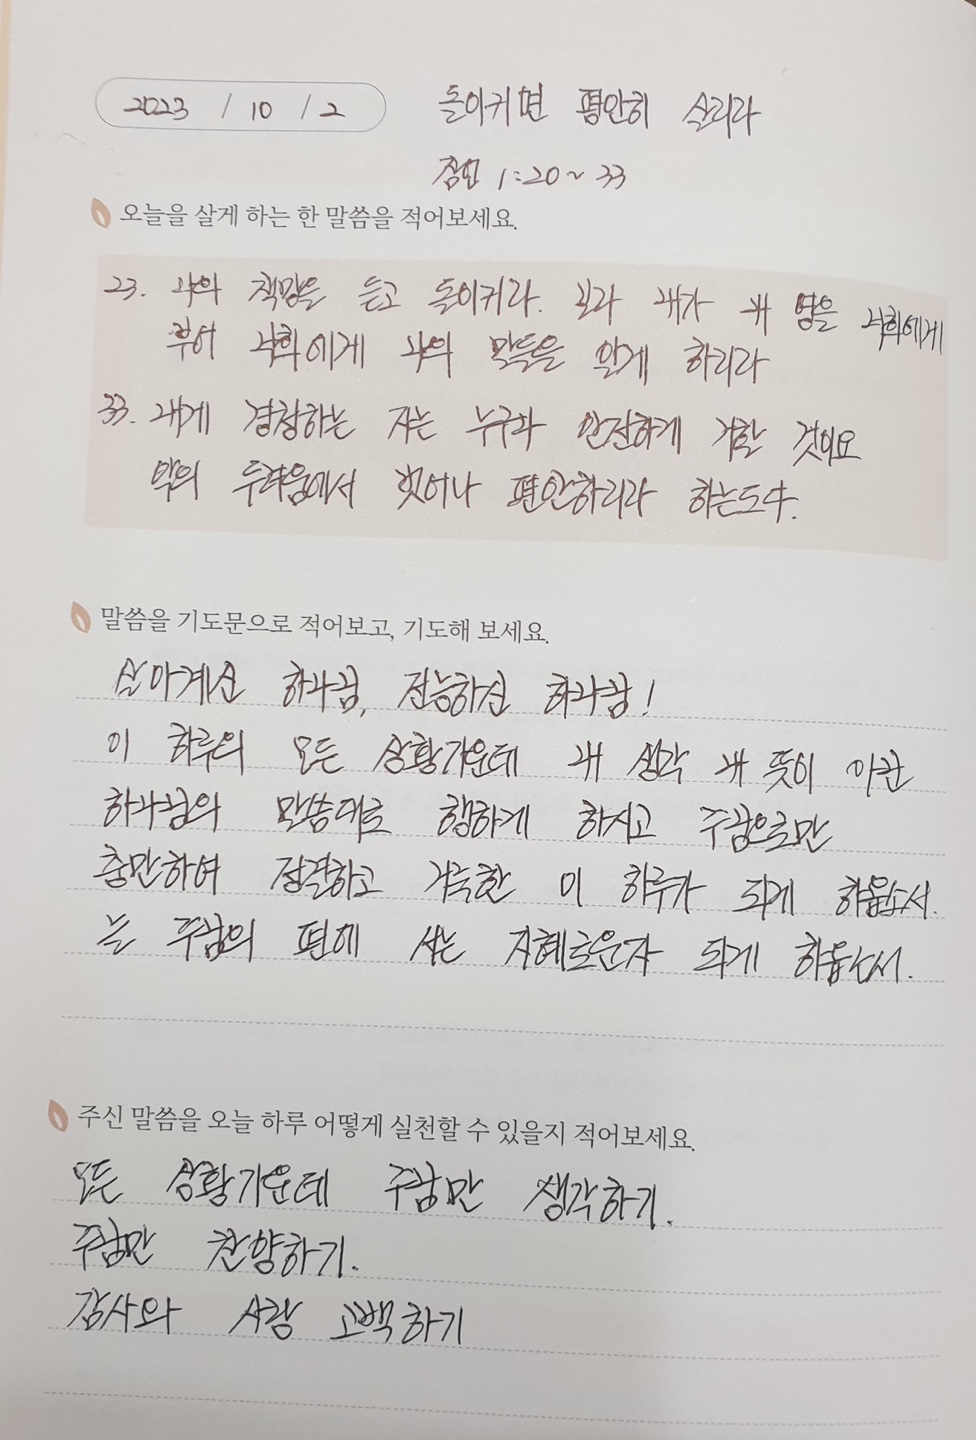 2023 / 10 / 2
돌이키면 평안히 살리라
잠언 1:20~33
오늘을 살게 하는 한 말씀을 적어보세요.
23. 나의 책망을 듣고 돌이키라. 보라 내가 내 영을 너희에게
부어 너희에게 나의 말들을 알게 하리라
33. 내게 경청하는 자는 누구나 안전하게 거할 것이요
악의 두려움에서 벗어나 평안하리라 하는도다.
말씀을 기도문으로 적어보고, 기도해 보세요.
살아계신 하나님, 전능하신 하나님!
이 하루의 모든 상황가운데 내 생각 내 뜻이 아닌
하나님의 말씀대로 행하게 하시고 주님으로만
충만하여 정결하고 거룩한 이 하루가 되게 하옵소서.
늘 주님의 편에 서는 지혜로운자 되게 하옵소서.
주신 말씀을 오늘 하루 어떻게 실천할 수 있을지 적어보세요.
모든 상황가운데 주님만 생각하기.
주님만 찬양하기.
감사와 사랑 고백하기